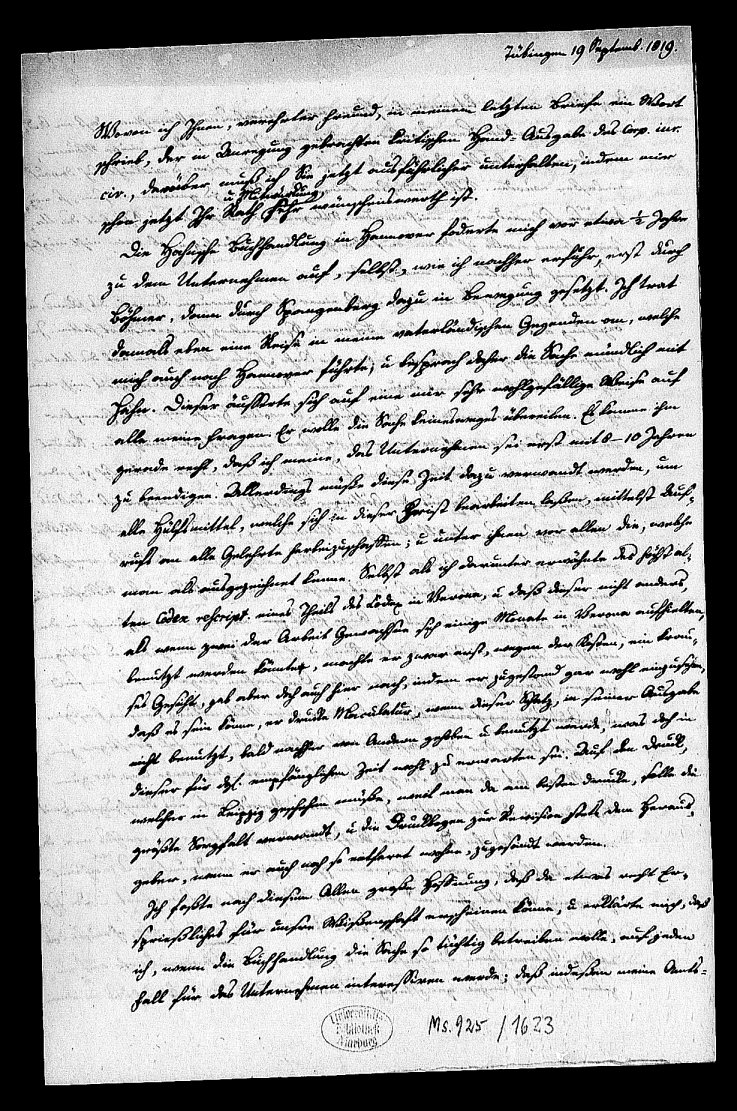 Tübingen 19 Septemb. 1819.
Wovon ich Ihnen, verehrter Freund, in meinem letzten Briefe ein Wort
schrieb, der in Anregung gebrachten kritischen Hand-Ausgabe des Corp. iur.
civ., darüber muß ich Sie jetzt ausführlicher unterhalten, indem mir
u. Mitwirkung
schon jetzt Ihr Rath sehr wünschenswerth ist.
Die Hahnsche Buchhandlung in Hannover foderte mich vor etwa ½ Jahre
zu dem Unternehmen auf, selbst, wie ich nachher erfuhr, erst durch
Böhmer, dann durch Spangenberg dazu in Bewegung gesetzt. Ich trat
damals eben eine Reise in meine vaterländischen Gegenden an, welche
mich auch nach Hannover führte, u besprach daher die Sache mündlich mit
Hahn. Dieser äusserte sich auf eine mir sehr wohlgefällige Weise auf
alle meine Fragen. Er wolle die Sache keineswegs übereilen. Es komme ihm
gerade recht, daß ich meine, das Unternehmen sei erst mit 8–10 Jahren
zu beendigen. Allerdings müße diese Zeit dazu verwandt werden, um
alle Hülfsmittel, welche sich in dieser Frist bearbeiten laßen, mittelst Auf-
rufs an alle Gelehrte herbeizuschaffen; u unter ihnen vor allen die, welche
man als ausgezeichnet kenne. Selbst als ich darunter erwähnte des höchst al-
ten Codex rescript. eines Theils des Codex in Verona, u daß dieser nicht anders,
als wenn zwei der Arbeit Gewachsene sich einige Monate in Verona aufhielten,
benutzt werden könnte, machte er zwar erst, wegen der Kosten, ein krau-
ses Gesicht, gab aber doch auch hier nach, indem er zugestand gar wohl einzusehen,
daß es sein könne, er drucke Maculatur, wenn dieser Schatz, in seiner Ausgabe
nicht benutzt, bald nachher von Andern gehoben u benutzt würde, was doch in
dieser für dgl. empfänglichen Zeit wohl zu erwarten sei. Auf den Druck,
welcher in Leipzig geschehen müße, weil man da am besten drucke, solle die
größte Sorgfalt verwandt, u die Druckbogen zur Revision stets dem Heraus-
geber, wenn er auch noch so entfernt wohne, zugesandt werden.
Ich faßte nach diesem Allen große Hoffnung, daß da etwas recht Er-
sprießliches für unsre Wißenschaft erscheinen könne, u erklärte mich, daß
ich, wenn die Buchhandlung die Sache so tüchtig betreiben wolle, auf jeden
Fall für das Unternehmen interessiren werde; daß indeßen meine Amts-
Universitäts
Bibliothek
Marburg
Ms. 925 / 1623